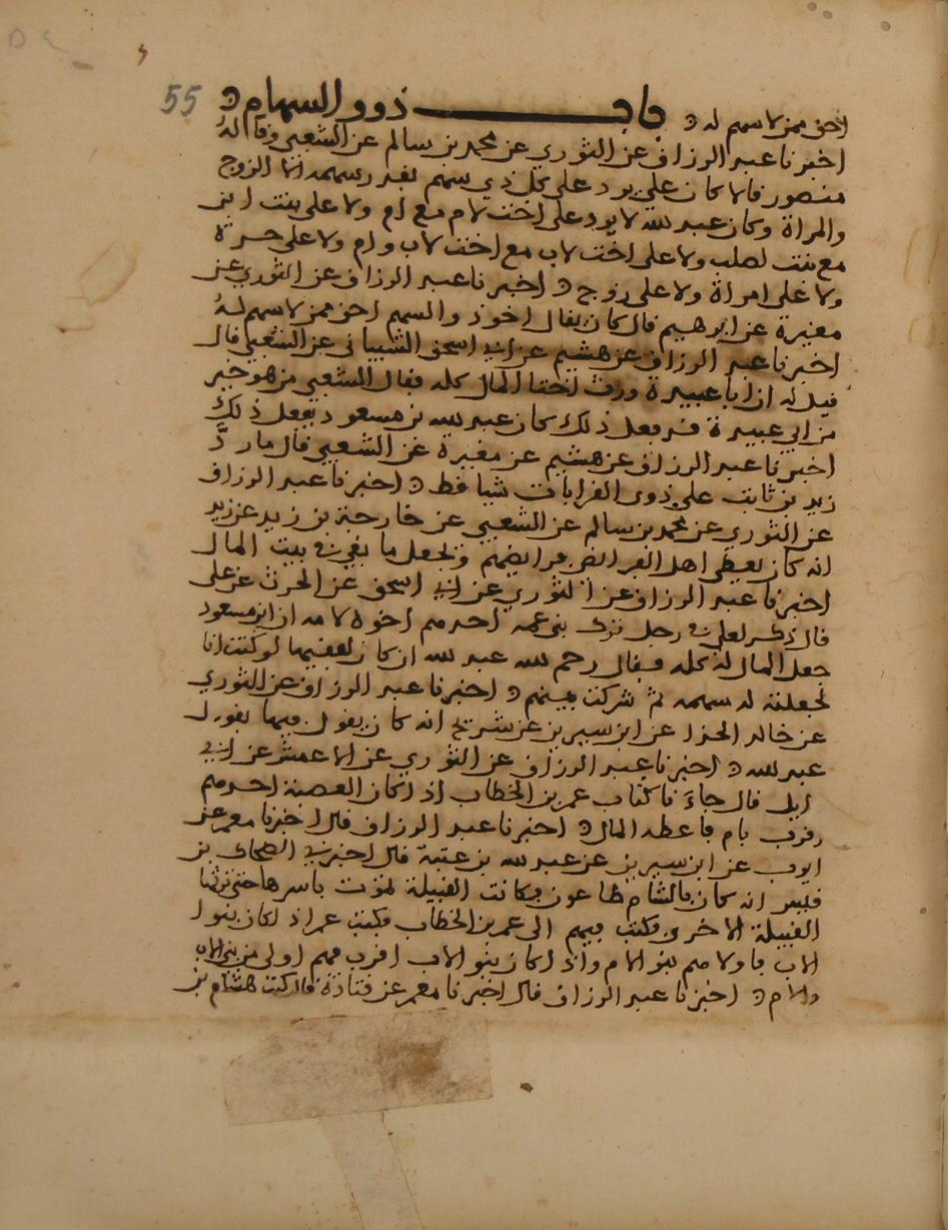 55
باب ذوو السهام
احق ممن لا سهم له
اخبرنا عبد الرزاق عن الثوري عن محمد بن سالم عن الشعبي وقاله
منصور قالا كان علي يرد على كل ذي سهم بقدر سهمه الا الزوج
والمراة وكان عبد الله لا يرد على اخت لام مع ام ولا على بنت ابن
مع بنت لصلب ولا على اخت لاب مع اخت لاب وام ولا على جدة
ولا على امراة ولا على زوج اخبرنا عبد الرزاق عن الثوري عن
مغيرة عن ابرهيم قال كان يقال اخو ذو السهم احق ممن لا سهم له
اخبرنا عبد الرزاق عن هشيم عن ابي اسحق الشيباني عن الشعبي قال
قيل له ان ابا عبيدة ورث اختا المال كله فقال الشعبي من هو خير
من ابي عبيدة قد فعل ذلك كان عبد الله بن مسعود يفعل ذلك
اخبرنا عبد الرزاق عن هشيم عن مغيرة عن الشعبي قال ما رد
زيد بن ثابت على ذوي القرابات شيا قط اخبرنا عبد الرزاق
عن الثوري عن محمد بن سالم عن الشعبي عن خارجة بن زيد عن زيد
انه كان يعطي اهل الفرائض فرايضهم ويجعل ما بقي في بيت المال
اخبرنا عبد الرزاق عن الثوري عن ابي اسحق عن الحرث عن علي
قال ذكر لعلي في رجل ترك بني عمه احدهم اخوه لامه ان ابن مسعود
جعل المال له كله فقال رحم الله عبد الله ان كان لفقيها لو كنت انا
لجعلت له سهمه ثم شركت بينهم اخبرنا عبد الرزاق عن الثوري
عن خالد الحذا عن ابن سيرين عن شريح انه كان يقول فيها بقول
عبد الله اخبرنا عبد الرزاق عن الثوري عن الاعمش عن ابي
وايل قال جاءنا كتاب عمر بن الخطاب اذا كان العصبة احدهم
اقرب بام فاعطه المال اخبرنا عبد الرزاق قال اخبرنا معمر عن
ايوب عن ابن سيرين عن عبد الله بن عتبة قال اخبرني الضحاك بن
قيس انه كان بالشام طاعون فكانت القبيلة تموت باسرها حتى ترثها
القبيلة الاخرى فكتب فيهم الى عمر بن الخطاب فكتب عمر اذا كان بنو
الاب فاولاهم بنو الام واذا كان بنو الاب اقرب فهم اولى من بني الاب
والام اخبرنا عبد الرزاق قال اخبرنا معمر عن قتادة قال كتب هشام بن